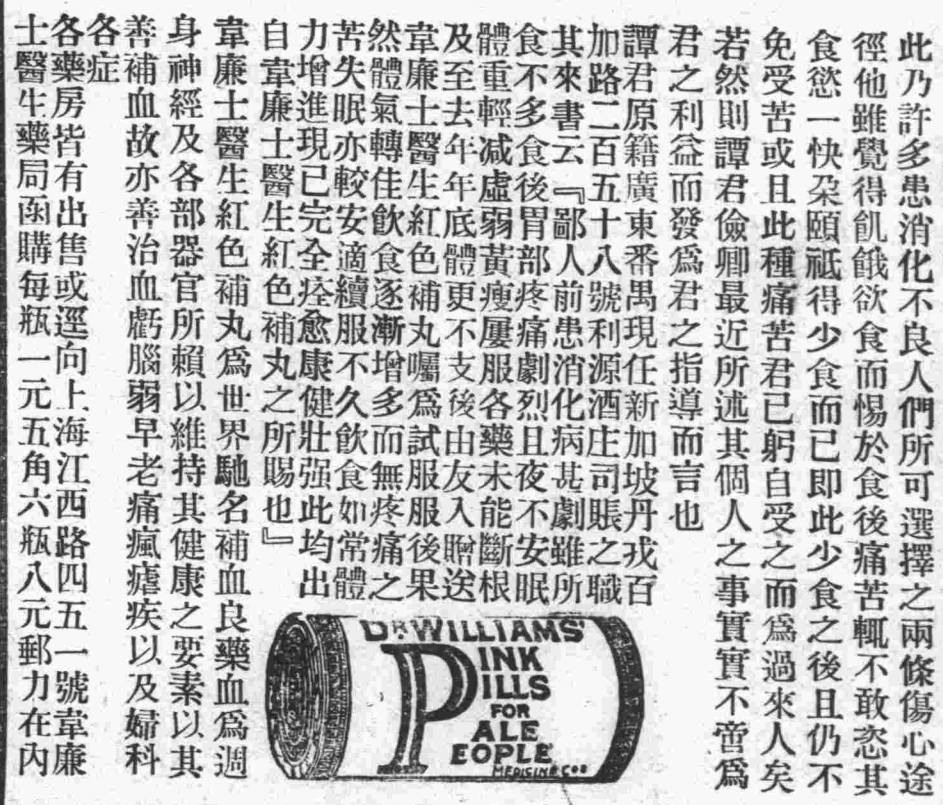 此乃許多患消化不良人們所可選擇之兩條傷心途
徑他雖覺得飢餓欲食而惕於食後痛苦輒不敢恣其
食慾一快朶頤祇得少食而已即此少食之後且仍不
免受苦或且此種痛苦君已躬自受之而爲過來人矣
若然則譚君儉卿最近所述其個人之事實實不啻爲
君之利益而發爲君之指導而言也
譚君原籍廣東番禺現任新加坡丹戎百
加路二百五十八號利源酒庄司賬之職
其來書云『鄙人前患消化病甚劇雖所
食不多食後胃部疼痛劇烈且夜不安眠
體重輕减虛弱黃瘦屢服各藥未能斷根
及至去年年底體更不支後由友入贈送
韋廉士醫生紅色補丸囑爲試服服後果
然體氣轉佳飲食逐漸增多而無疼痛之
苦失眠亦較安適續服不久飲食如常體
力增進現已完全痊愈康健壯强此均出
自韋廉士醫生紅色補丸之所賜也』
韋廉士醫生紅色補丸爲世界馳名補血良藥血爲週
身神經及各部器官所賴以維持其健康之要素以其
善補血故亦善治血虧腦弱早老痛瘋瘧疾以及婦科
各症
各藥房皆有出售或逕向上海江西路四五一號韋廉
士醫生藥局函購每瓶一元五角六瓶八元郵力在內
DR WILLIAMS'
PINK
PILLS
FOR
PALE
PEOPLE
MEDICINE CO